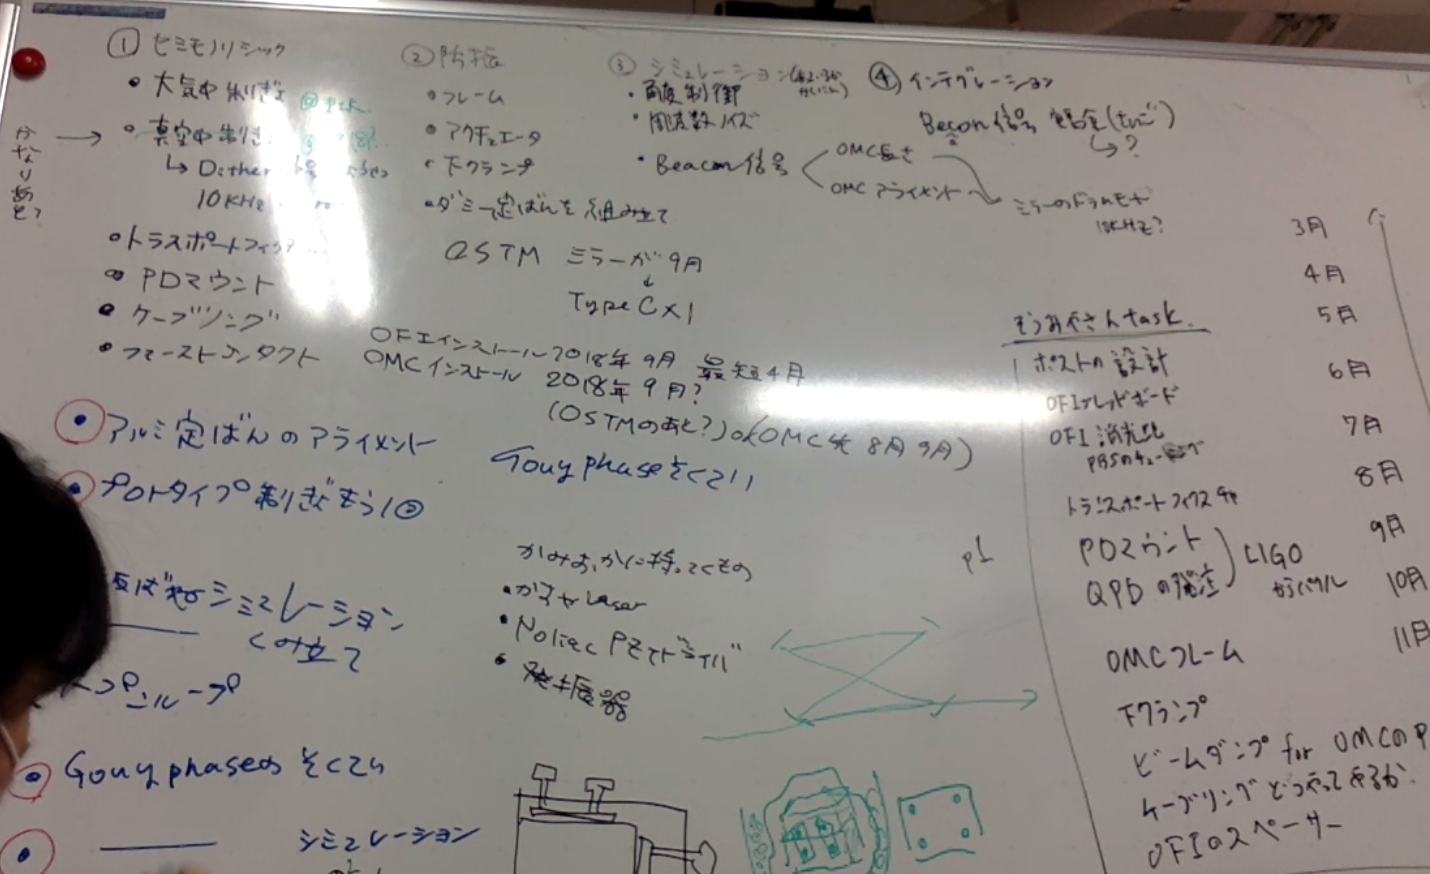 ① セミモノリシック
• 大気中 制ぎょ
• 真空中 制ぎょ
↳ Dither
10KHz
かなりあと?
• トラスポートフィクス
• PDマウント
• ケーブリング
• ファーストコンタクト
② 防振
• フレーム
• アクチュエータ
• 下クランプ
• ダミー定ばんを組み立て
OSTM ミラーが9月
↓
Type C×1
③ シミュレーション
• 角度制御
• 周波数ノイズ
• Beacon信号
OMC長さ
OMC アライメント
④ インテグレーション
Beacon信号
↳?
ミラーのドラムモード
10KHz?
OFIインストール 2018年 9月 最短4月
OMCインストール 2018年 9月?
(OSTMのあと?) or (OMC 8月 9月)
• アルミ定ばんのアライメント
• プロトタイプ制ぎょもう1コ
シミュレーション
くみ立て
ループ
• Gouy phaseの そくてい
• シミュレーション
Gouy phaseそくてい
かみおかに持ってくもの
• Laser
• Noliac PZTドライバ
• 発振器
p1
task
ポストの設計
OFIブレッドボード
OFI 消光比
PBSのチューニング
トランスポートフィクスチャ
PDマウント
QPDの発注
LIGO
OMCフレーム
下クランプ
ビームダンプ for OMCの
ケーブリングどうやってやるか
OFIのスペーサー
3月
4月
5月
6月
7月
8月
9月
10月
11月